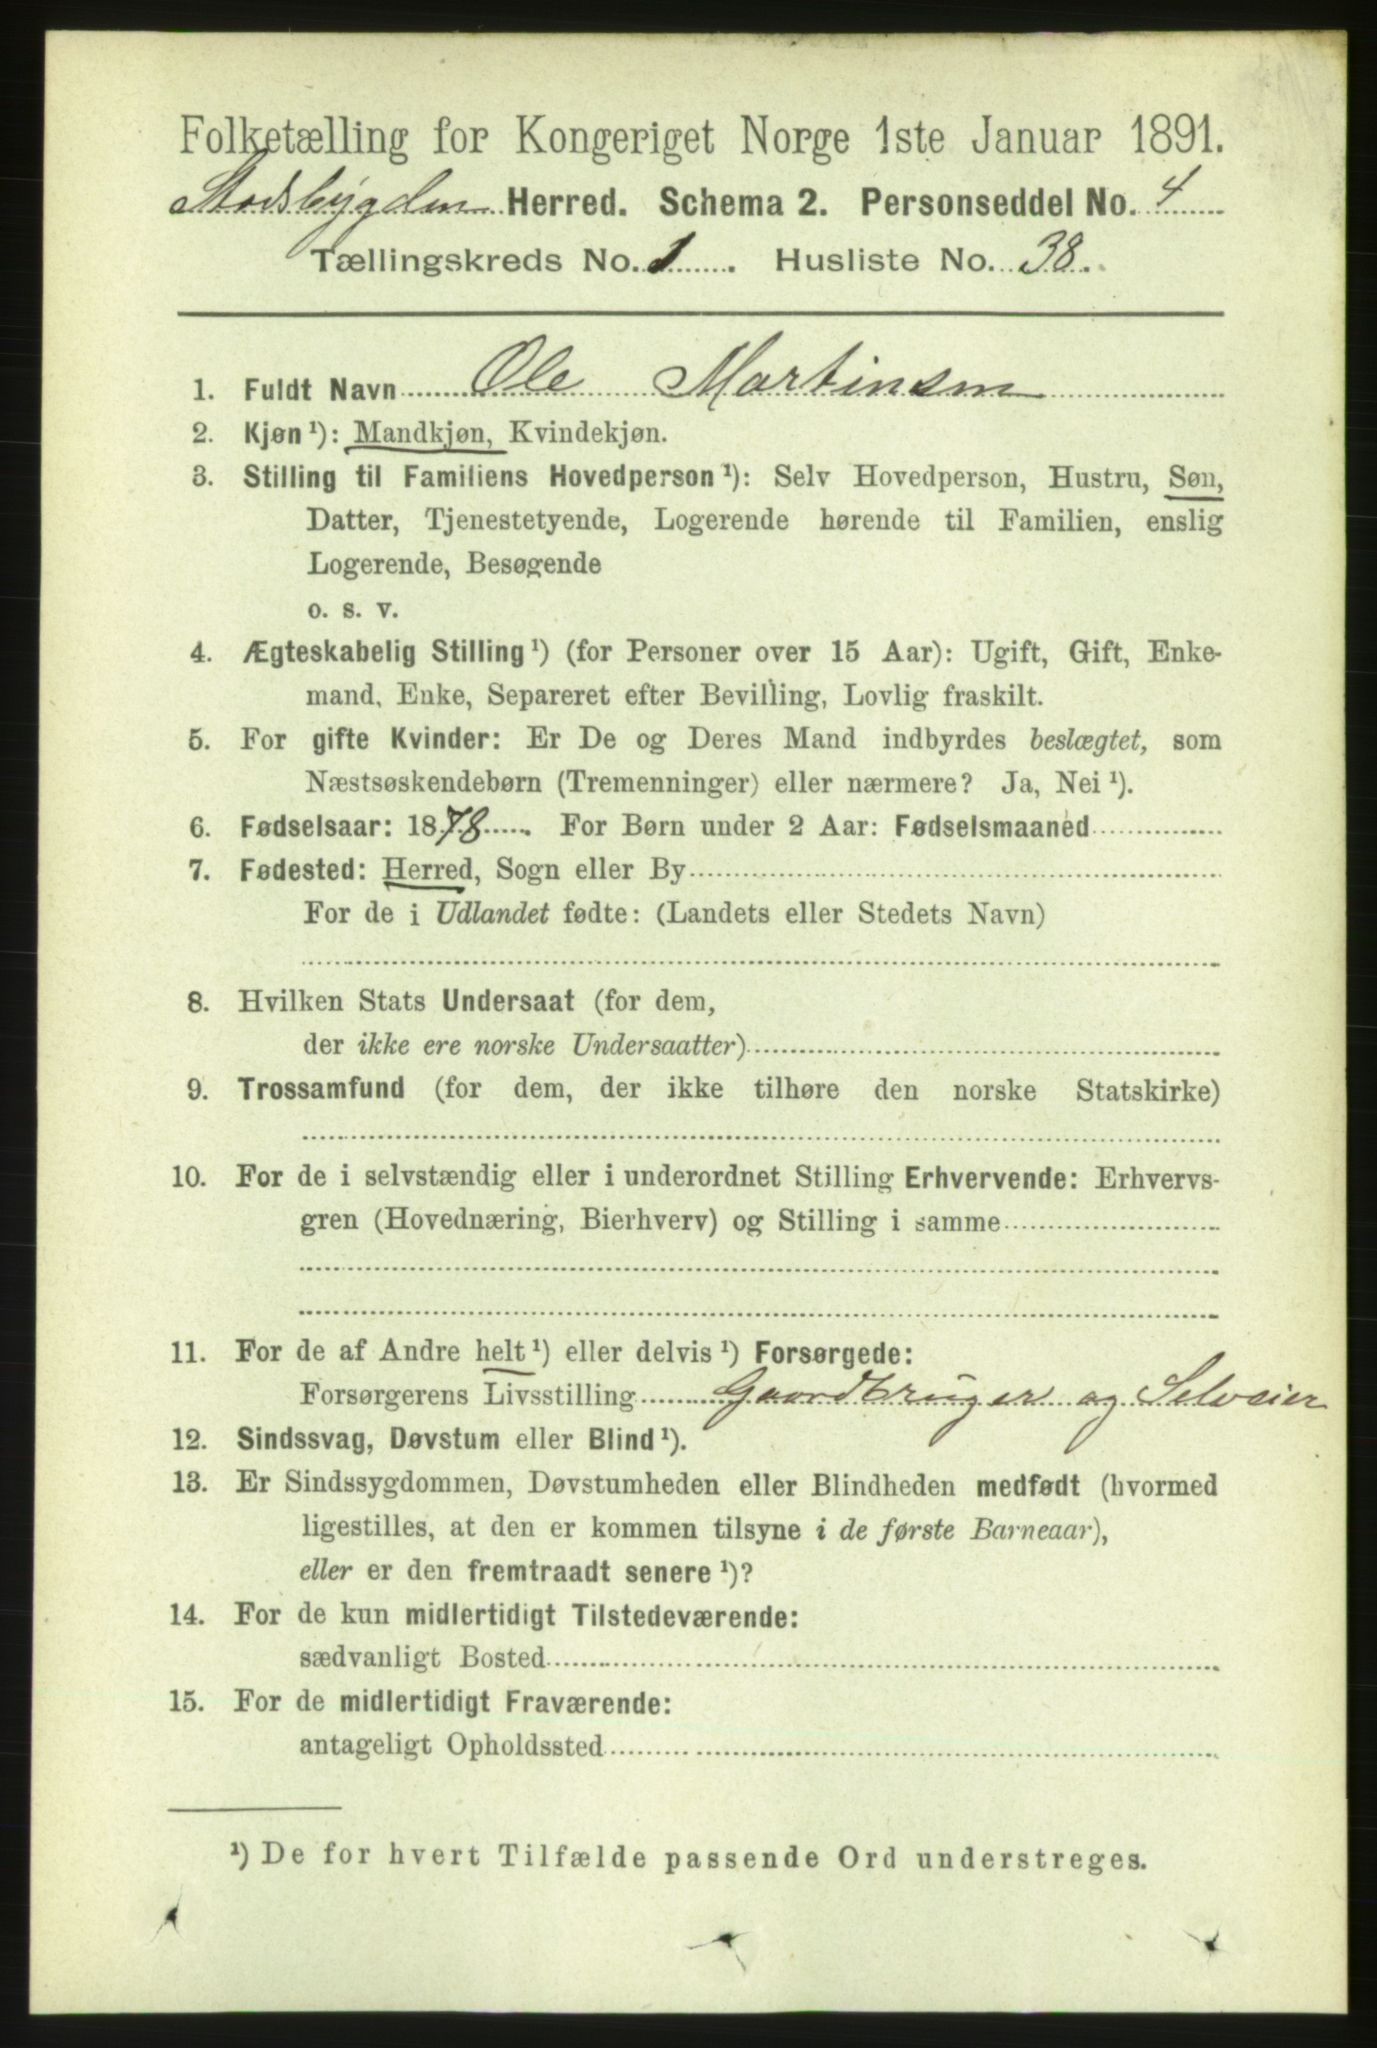 Folketælling for Kongeriget Norge 1ste Januar 1891.
Stadsbygden Herred. Schema 2. Personseddel No. 4
Tællingskreds No. 1. Husliste No. 38.
1. Fuldt Navn Ole Martinsen
2. Kjøn ¹): Mandkjøn, Kvindekjøn.
3. Stilling til Familiens Hovedperson ¹): Selv Hovedperson, Hustru, Søn,
Datter, Tjenestetyende, Logerende hørende til Familien, enslig
Logerende, Besøgende
o. s. v.
4. Ægteskabelig Stilling ¹) (for Personer over 15 Aar): Ugift, Gift, Enke-
mand, Enke, Separeret efter Bevilling, Lovlig fraskilt.
5. For gifte Kvinder: Er De og Deres Mand indbyrdes beslægtet, som
Næstsøskendebørn (Tremenninger) eller nærmere? Ja, Nei ¹).
6. Fødselsaar: 1878. For Børn under 2 Aar: Fødselsmaaned
7. Fødested: Herred, Sogn eller By
For de i Udlandet fødte: (Landets eller Stedets Navn)
8. Hvilken Stats Undersaat (for dem,
der ikke ere norske Undersaatter)
9. Trossamfund (for dem, der ikke tilhøre den norske Statskirke)
10. For de i selvstændig eller i underordnet Stilling Erhvervende: Erhvervs-
gren (Hovednæring, Bierhverv) og Stilling i samme
11. For de af Andre helt ¹) eller delvis ¹) Forsørgede:
Forsørgerens Livsstilling Gaardbruger og Selveier
12. Sindssvag, Døvstum eller Blind ¹).
13. Er Sindssygdommen, Døvstumheden eller Blindheden medfødt (hvormed
ligestilles, at den er kommen tilsyne i de første Barneaar),
eller er den fremtraadt senere ¹)?
14. For de kun midlertidigt Tilstedeværende:
sædvanligt Bosted
15. For de midlertidigt Fraværende:
antageligt Opholdssted
¹) De for hvert Tilfælde passende Ord understreges.